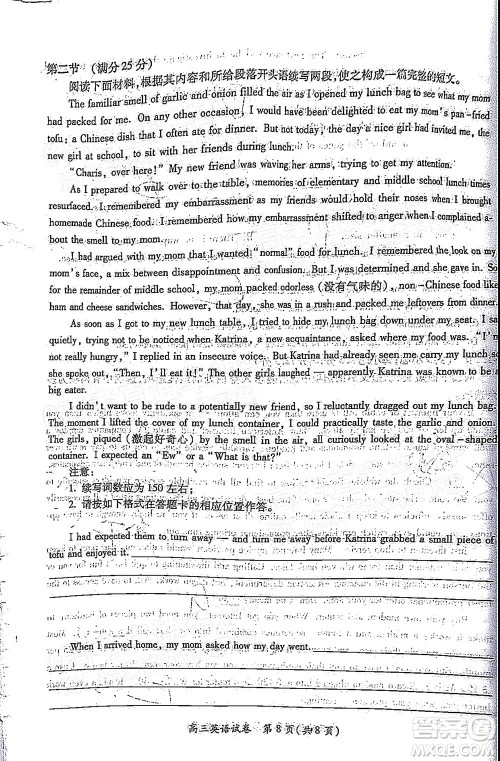 第二节 (满分25分)
阅读下面材料,根据其内容和所给段落开头语续写两段,使之构成一篇完整的短文。
The familiar smell of garlic and onion filled the air as I opened my lunch bag to see what my mom
had packed for me. On any other occasion, I would have been delighted to eat my mom's pan-fried
tofu; a Chinese dish that I often ate for dinner. But not today; today a nice girl had invited me, the
new girl at school, to sit with her friends during lunch.
"Charis, over here!" My new friend was waving her arms, trying to get my attention.
As I prepared to walk over to the table, memories of elementary and middle school lunchtimes
resurfaced. I remembered my embarrassment as my friends would hold their noses when I brought
homemade Chinese food. I remembered how my embarrassment shifted to anger when I complained a-
bout the smell to my mom.
I had argued with my mom that I wanted "normal" food for lunch. I remembered the look on my
mom's face, a mix between disappointment and confusion. But I was determined and she gave in. So
for the remainder of middle school, my mom packed odorless (没有气味的), non-Chinese food like
ham and cheese sandwiches. However, today, she was in a rush and packed me leftovers from dinner.
As soon as I got to my new lunch table, I started to hide my lunch bag under my seat. I sat
quietly, trying not to be noticed when Katrina, a new acquaintance, asked where my food was. "I'm
not really hungry," I replied in an insecure voice. But Katrina had already seen my lunch container so
she spoke out, "Then, I'll eat it!" The other girls laughed — apparently Katrina was known to be a
big eater.
I didn't want to be rude to a potentially new friend, so I reluctantly dragged out my lunch bag.
The moment I lifted the cover of my lunch container, I could smell the garlic and onion.
The girls, piqued (激起好奇心) by the smell in the air, all curiously looked at the oval-shaped
container. I expected an "Ew" or a "What is that?"
注意:
1. 续写词数应为 150 左右;
2. 请按如下格式在答题卡的相应位置作答。
I had expected them to turn away — and turn me away before Katrina grabbed a small piece of
tofu and enjoyed it.
When I arrived home, my mom asked how my day went.
高三英语试卷 第 8 页(共 8 页)